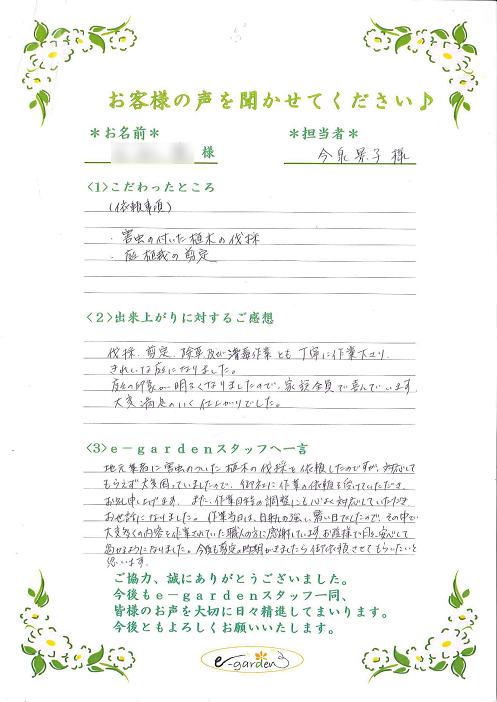 お客様の声を聞かせてください♪
＊お名前＊
＊担当者＊
様
今泉景子様
〈1〉こだわったところ
(依頼事項)
・害虫の付いた植木の伐採
・庭植栽の剪定
〈2〉出来上がりに対するご感想
伐採、剪定、除草及び消毒作業とも丁寧に作業下さり、
きれいな庭になりました。
庭の印象が明るくなりましたので、家族全員で喜んでいます
大変満足のいく仕上がりでした。
〈3〉e－gardenスタッフへ一言
地元業者に害虫のついた植木の伐採を依頼したのですが、対応して
もらえず大変困っていましたので、御社に作業の依頼を受けていただき、
お礼申し上げます。また、作業日時の調整にも心よく対応していただき
お世話になりました。作業当日は、日射しの強い暑い日でしたので、その中で
大変多くの内容を作業されていた職人の方に感謝しています。お陰様で
過ごせるようになりました。今後も剪定の時期がきましたら御依頼させてもらいたいと
思います。
ご協力、誠にありがとうございました。
今後もe－gardenスタッフ一同、
皆様のお声を大切に日々精進してまいります。
今後ともよろしくお願いいたします。
e-garden